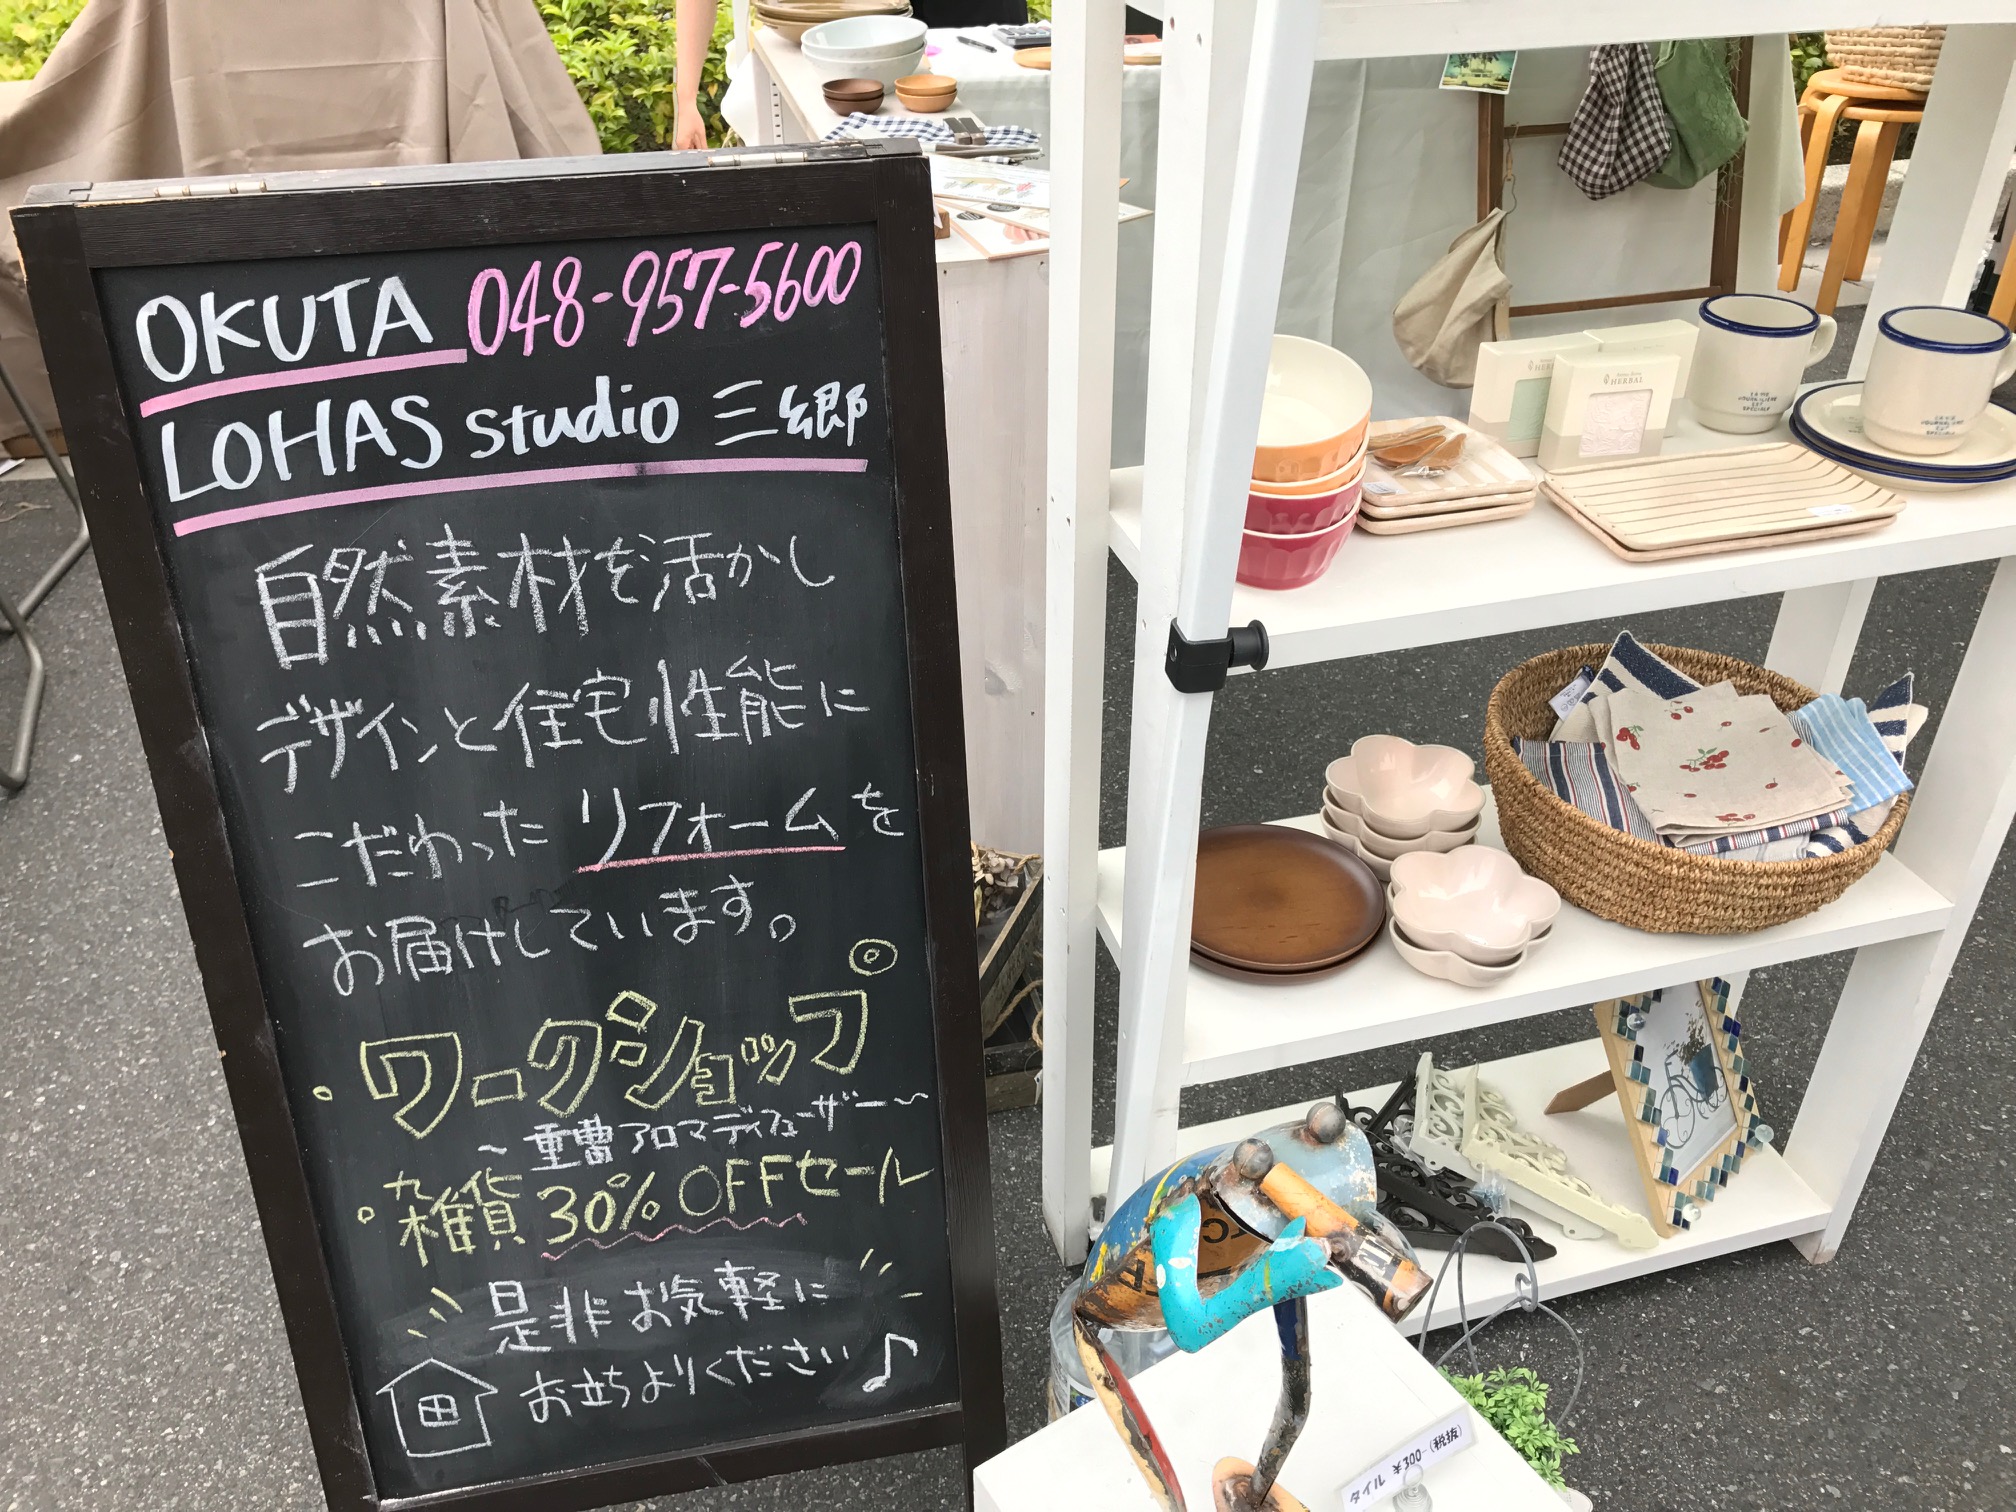 OKUTA 048-957-5600
LOHAS studio 三郷
自然素材を活かし
デザインと住宅性能に
こだわった リフォームを
お届けしています。
・ワークショップ◎
～重曹アロマディフューザー～
・雑貨 30% OFFセール
是非お気軽に
お立ちよりください♪
HERBAL
HERBAL
LA VIE
JOURNALIERE
EST
SPECIALE
LA VIE
JOURNALIERE
EST
SPECIALE
タイル ¥300-(税抜)